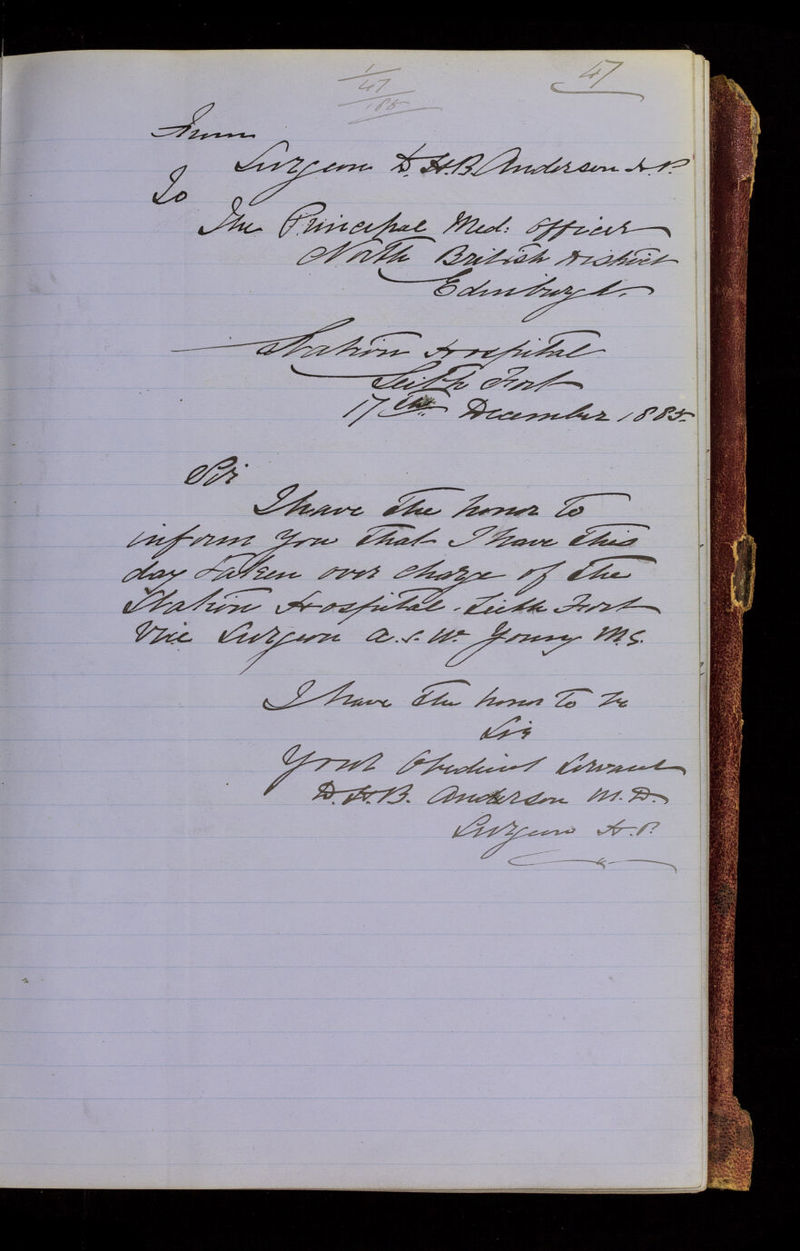 1/47/188
47
From
Surgeon D. H. B. Anderson H. P.
To
The Principal Med: Officer
North British District
Edinburgh.
Station Hospital
Leith Fort
17th December 1885.
Sir
I have the honor to
inform you that I have this
day taken over charge of the
Station Hospital. Leith Fort
Vice Surgeon A. S. W. Young M.S.
I have the honor to be
Sir
Your Obedient Servant
D. H. B. Anderson M. D.
Surgeon H. P.